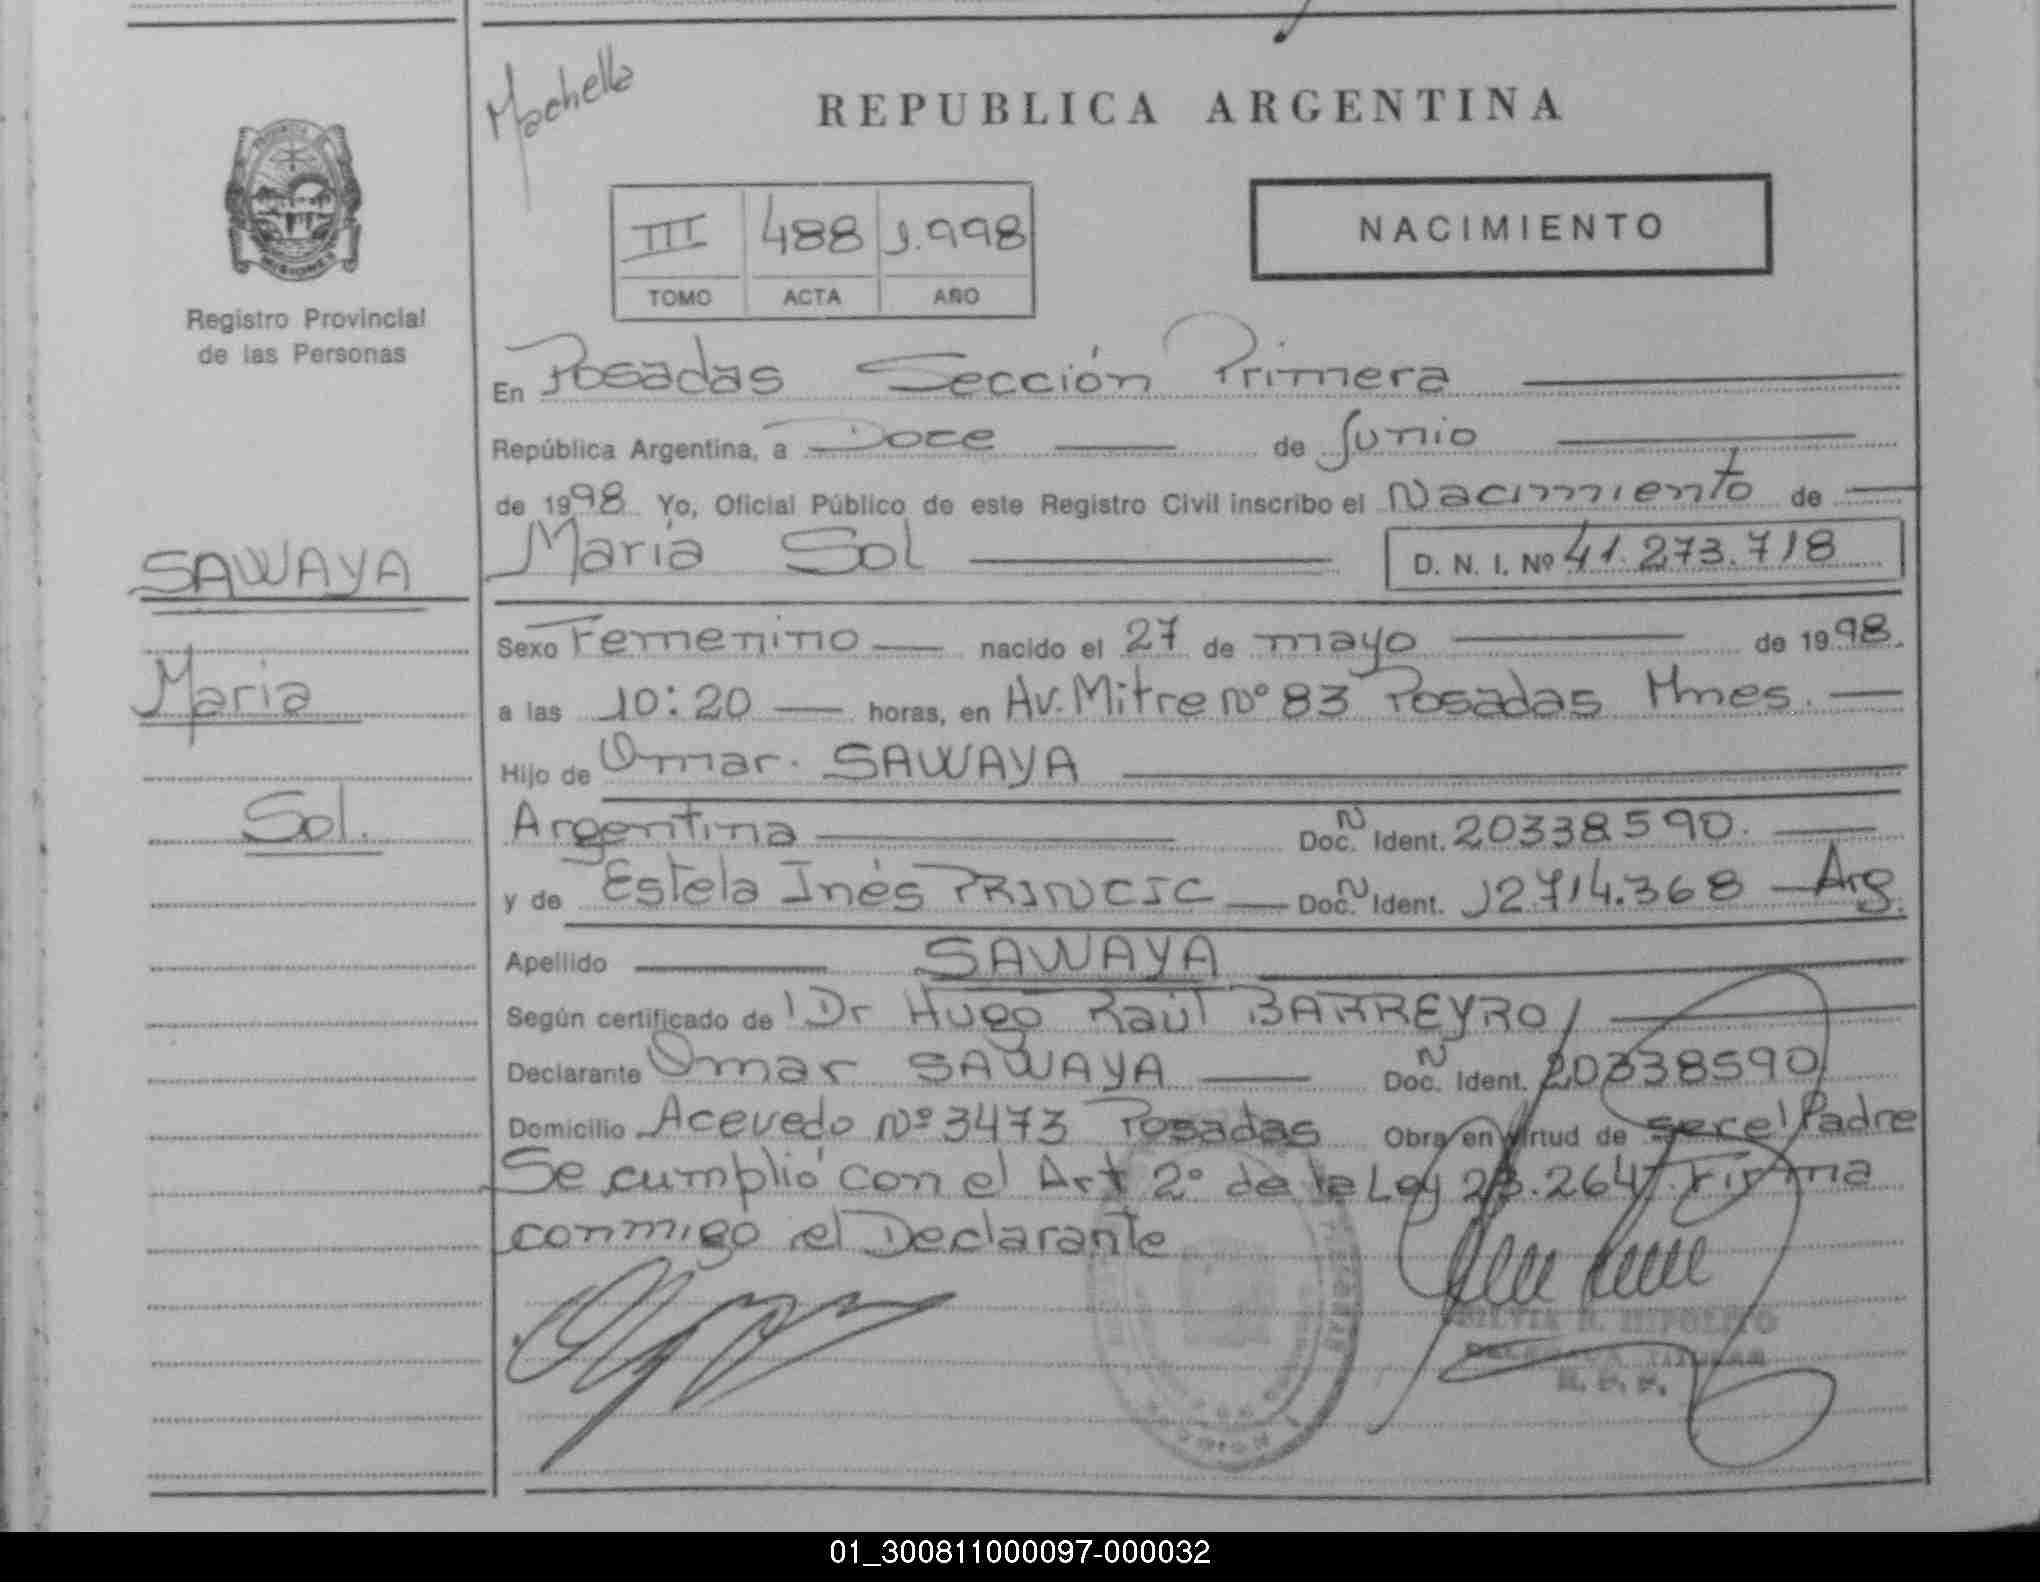 Machella
REPUBLICA ARGENTINA
III 488 1.998
TOMO ACTA AÑO
NACIMIENTO
MISIONES
Registro Provincial
de las Personas
En Posadas Sección Primera
República Argentina, a Doce de Junio
de 1998 Yo, Oficial Público de este Registro Civil inscribo el Nacimiento de
SAWAYA
María Sol D. N. I. Nº 41.273.718
Sexo Femenino nacido el 27 de mayo de 1998.
Maria
a las 10:20 horas, en Av. Mitre Nº 83 Posadas Mnes.
Hijo de Omar. SAWAYA
Sol.
Argentina Doc. N Ident. 20338590.
y de Estela Inés PRINCIC Doc. N Ident. 12714.368 Arg.
Apellido SAWAYA
Según certificado de Dr Hugo Raúl BARREYRO
Declarante Omar SAWAYA Doc. N Ident. 20338590
Domicilio Acevedo Nº 3473 Posadas Obra en virtud de ser el Padre
Se cumplió con el Art 2º de la Ley 23.264. Firma
conmigo el Declarante
SILVIA R. HIPOLITO
DELEGADA TITULAR
R. P. P.
01_300811000097-000032